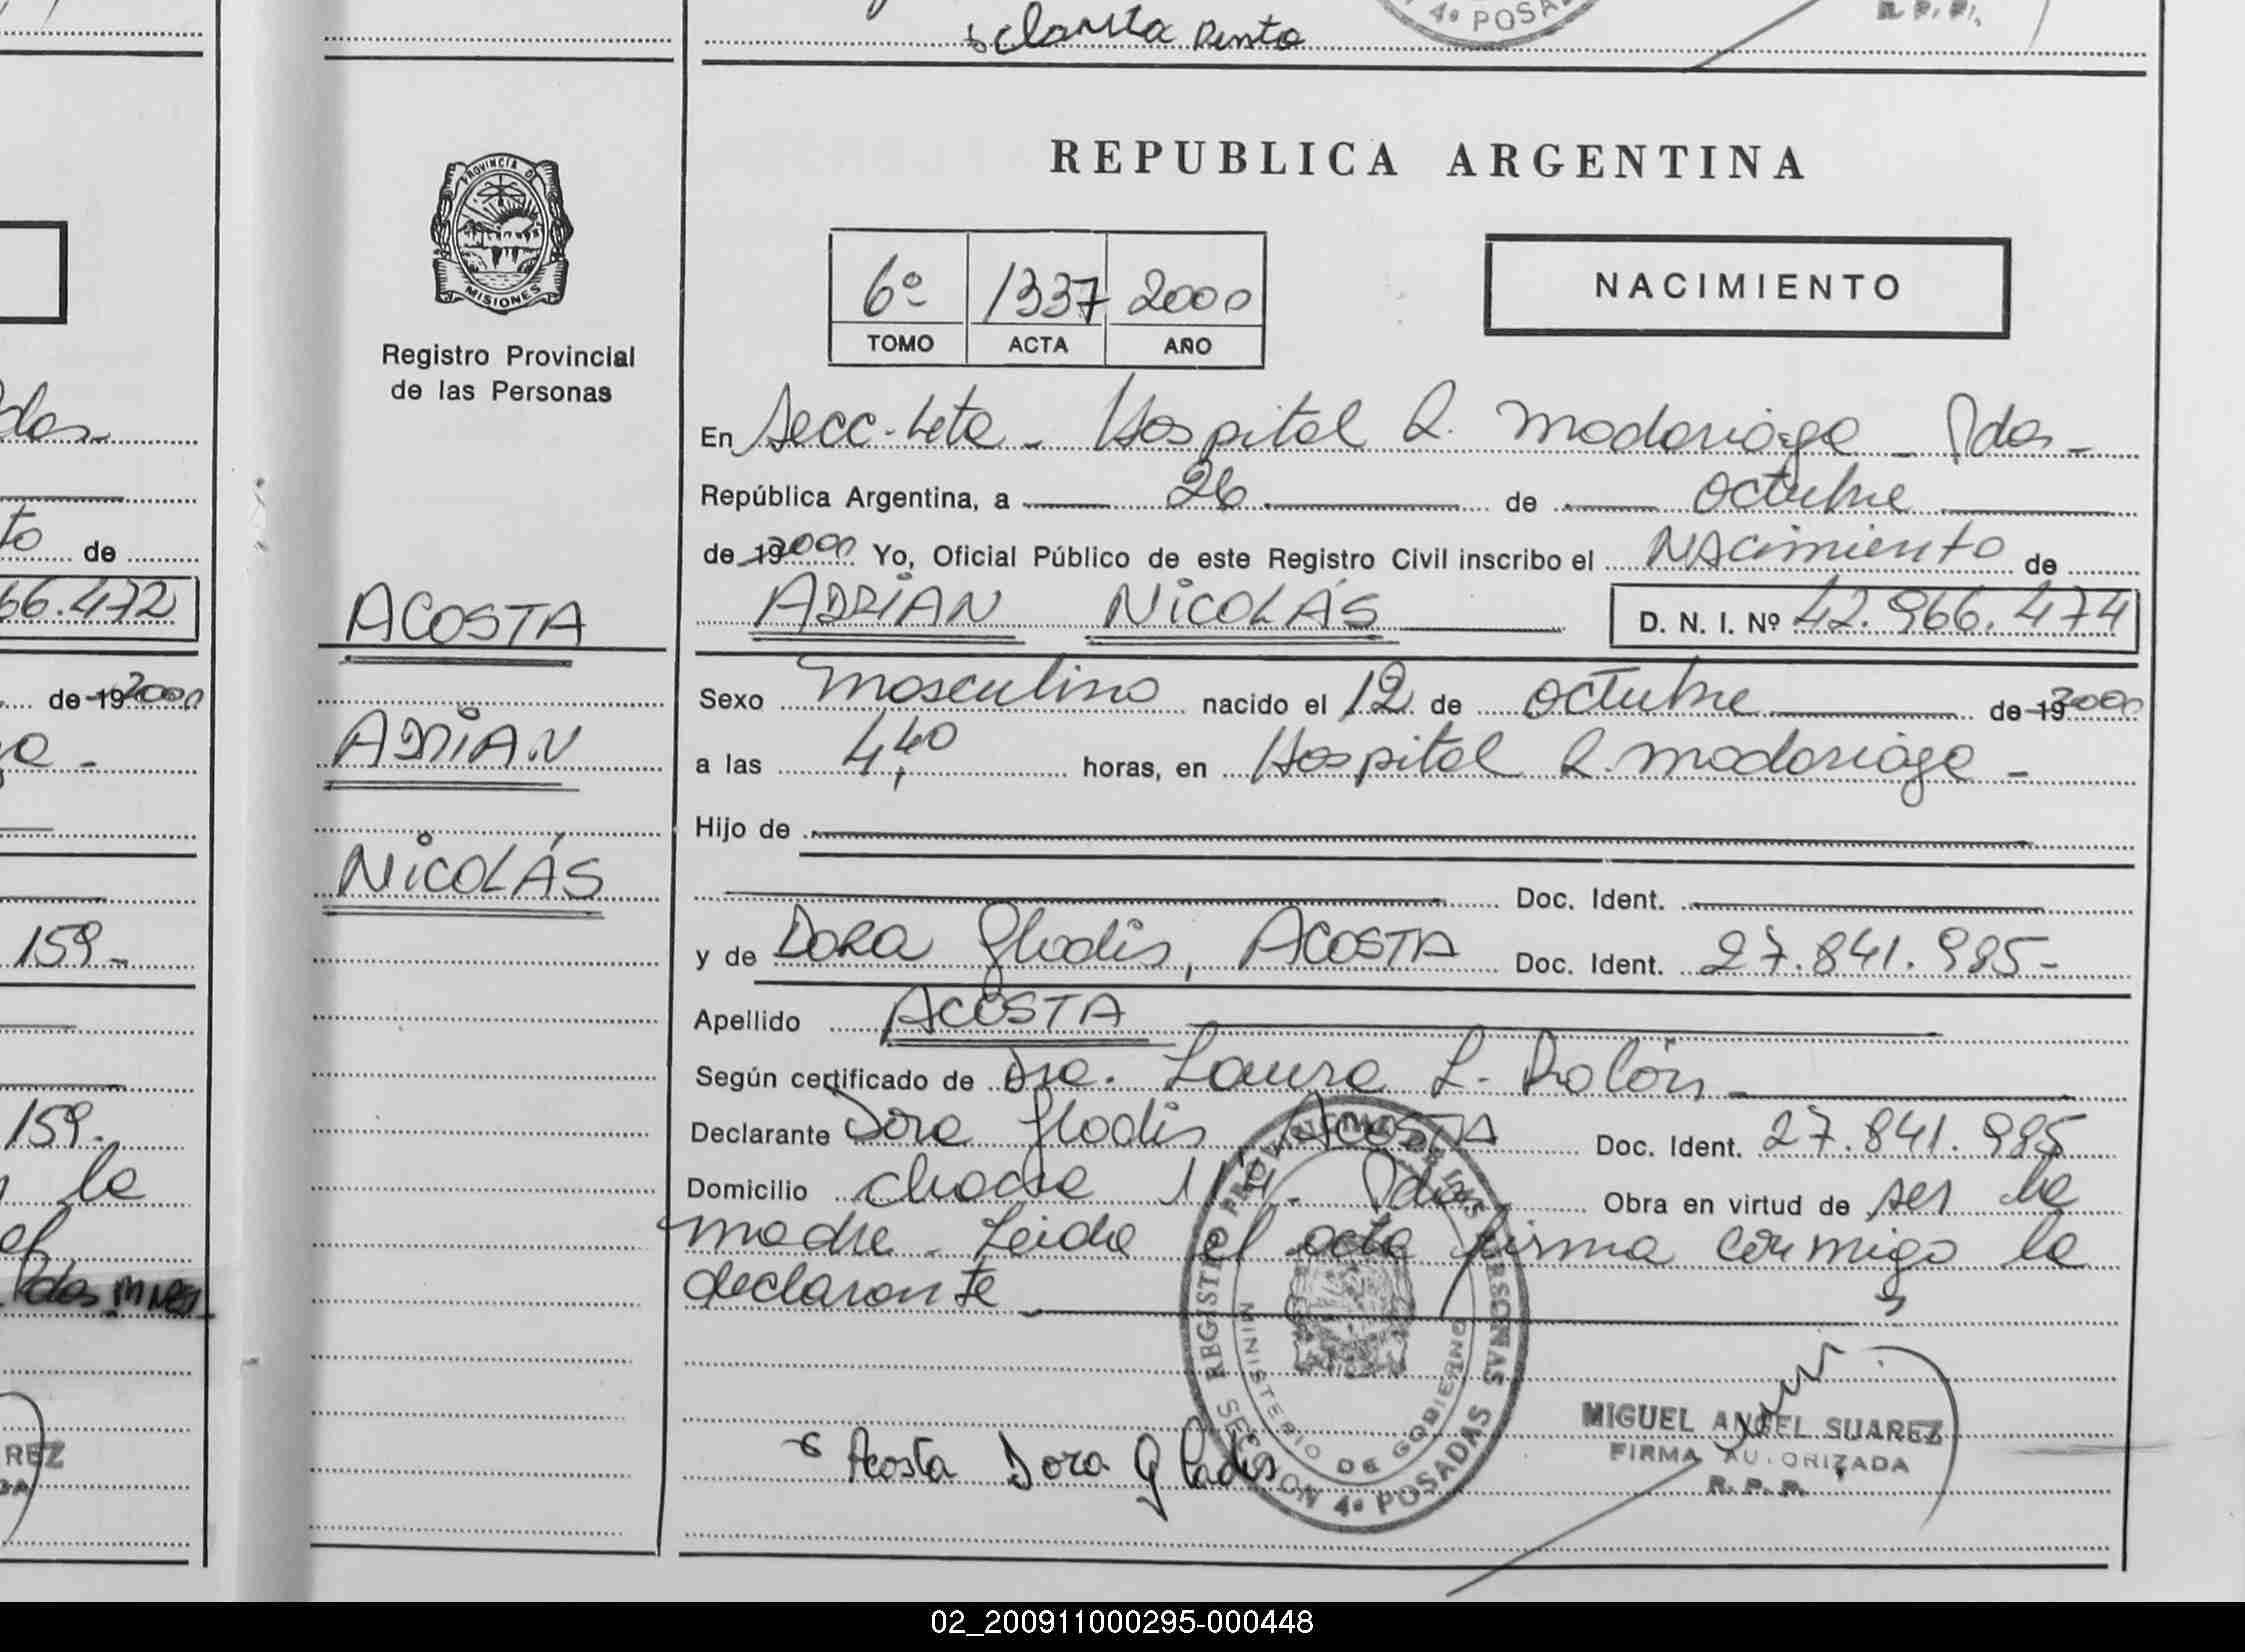 Clarita Pinto
4º POSA
R. P. P.
dos
to de
66.472
de 19 2000
159.-
159.-
la
el
REZ
PROVINCIA D
MISIONES
Registro Provincial
de las Personas
ACOSTA
ADRIAN
NICOLÁS
REPUBLICA ARGENTINA
6º 1337 2000
TOMO ACTA AÑO
NACIMIENTO
En Secc. 4ta - Hospital R. Madariaga - Pdas -
República Argentina, a 26 de octubre
de 19 2000 Yo, Oficial Público de este Registro Civil inscribo el NAcimiento de
ADRIAN NICOLÁS D. N. I. Nº 42.966.474
Sexo masculino nacido el 12 de octubre de 19 2000
a las 4,40 horas, en Hospital R. Madariaga -
Hijo de
Doc. Ident.
y de DORA Gladis, ACOSTA Doc. Ident. 27.841.995-
Apellido ACOSTA
Según certificado de Dra. Laura L. Dalón
Declarante Dora Gladis ACOSTA Doc. Ident. 27.841.995
Domicilio chacra 114. Pdas Obra en virtud de ser la
madre - Leida el acta firma conmigo la
declarante
Acosta Dora Gladis
REGISTRO PROVINCIAL DE LAS PERSONAS
MINISTERIO DE GOBIERNO
SECCION 4º POSADAS
MIGUEL ANGEL SUAREZ
FIRMA AUTORIZADA
R. P. P.
02_200911000295-000448